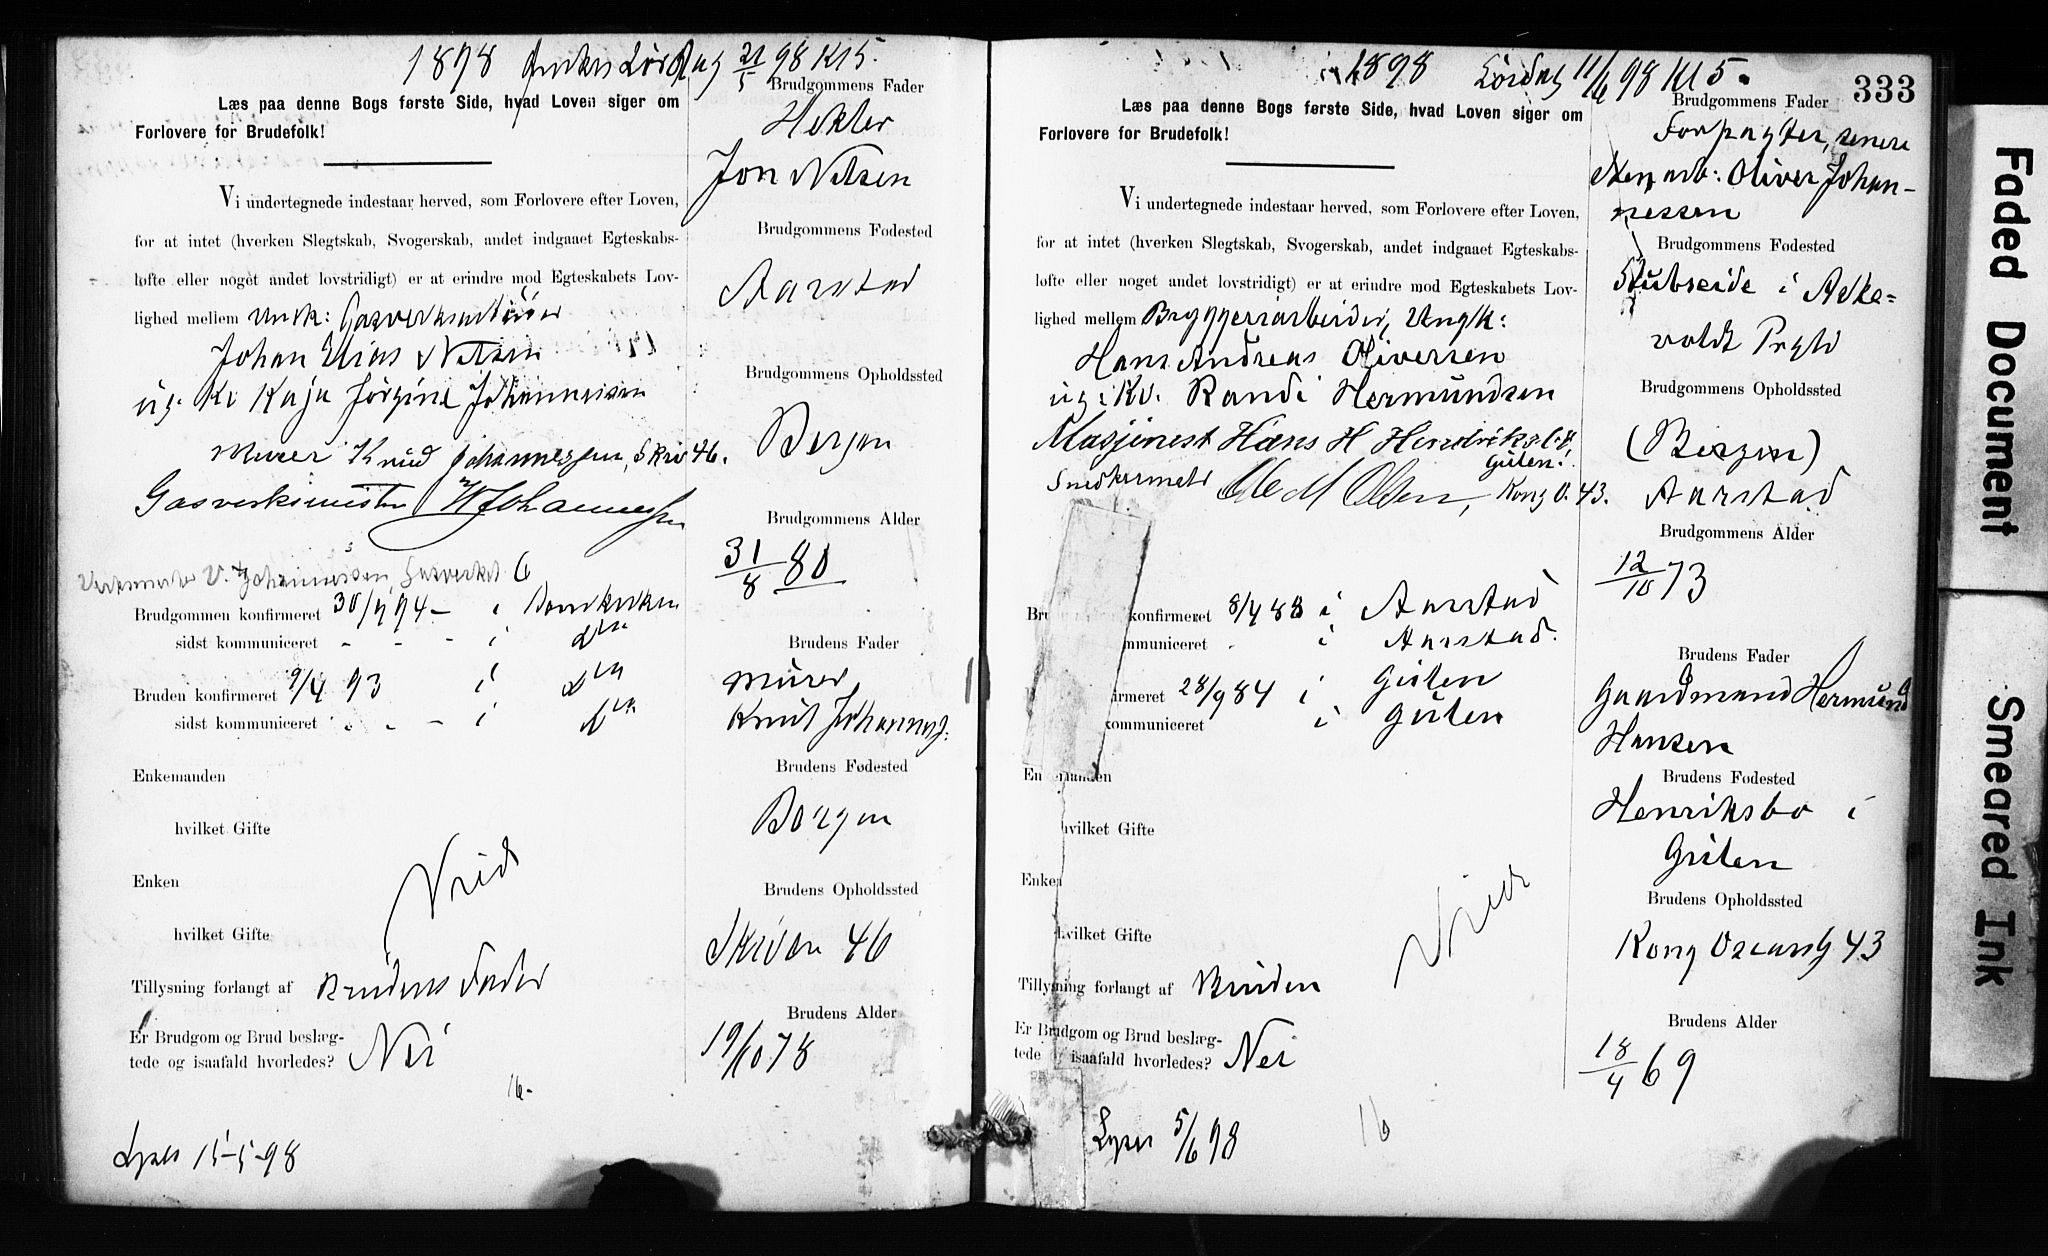 1898 Lørdag 21/5 98 Kl 5.
Læs paa denne Bogs første Side, hvad Loven siger om
Forlovere for Brudefolk!
Vi undertegnede indestaar herved, som Forlovere efter Loven,
for at intet (hverken Slegtskab, Svogerskab, andet indgaaet Egteskabs-
løfte eller noget andet lovstridigt) er at erindre mod Egteskabets Lov-
lighed mellem Ungk: Gasverksarbeider
Johan Elias Nilsen
ug. Kv Kaja Jørgine Johannessen
Murer Knud Johannessen, Skiv 46.
Gasverksmester Johannessen
V. Johannessen, Gasverket 6
Brudgommen konfirmeret 30/9 94 - i Domkirken
sidst kommuniceret - - - i do
Bruden konfirmeret 9/4 93 i do
sidst kommuniceret - - - i do
Enkemanden
hvilket Gifte
Enken
hvilket Gifte
Viet
Tillysning forlangt af Brudens Fader
Er Brudgom og Brud beslæg-
tede og isaafald hvorledes? Nei
16-
Lyses 15-5-98
Brudgommens Fader
Jon Nilsen
Brudgommens Fødested
Aarstad
Brudgommens Opholdssted
Bergen
Brudgommens Alder
31/8 80
Brudens Fader
Murer
Knut Johanness:
Brudens Fødested
Bergen
Brudens Opholdssted
Skiven 46
Brudens Alder
19/10 78
1898 Lørdag 11/6 98 Kl 5.
333
Læs paa denne Bogs første Side, hvad Loven siger om
Forlovere for Brudefolk!
Vi undertegnede indestaar herved, som Forlovere efter Loven,
for at intet (hverken Slegtskab, Svogerskab, andet indgaaet Egteskabs-
løfte eller noget andet lovstridigt) er at erindre mod Egteskabets Lov-
lighed mellem Bryggeriarbeider, Ungk:
Hans Andreas Oliversen
ug: Kv. Randi Hermundsen
Maskinest Hans H Henriksbø
Gulen!
Ole M Olsen, Kong O. 43.
konfirmeret 8/4 88 i Aarstad
mmuniceret - i Aarstad.
irmeret 28/9 84 i Gulen
kommuniceret i Gulen
Enkemanden
hvilket Gifte
Enken
hvilket Gifte
Viet
Tillysning forlangt af Bruden
Er Brudgom og Brud beslæg-
tede og isaafald hvorledes? Nei
Lyses 5/6 98
16
Brudgommens Fader
Forpagter, senere
Stenarb: Oliver Johan-
nessen
Brudgommens Fødested
Stubseide i Aske-
voldt Prgld
Brudgommens Opholdssted
(Bergen)
Aarstad
Brudgommens Alder
12/10 73
Brudens Fader
Gaardmand Hermund
Hansen
Brudens Fødested
Henriksbø i
Gulen
Brudens Opholdssted
Kong Oscarsg 43
Brudens Alder
18/4 69
Faded Document
Smeared Ink